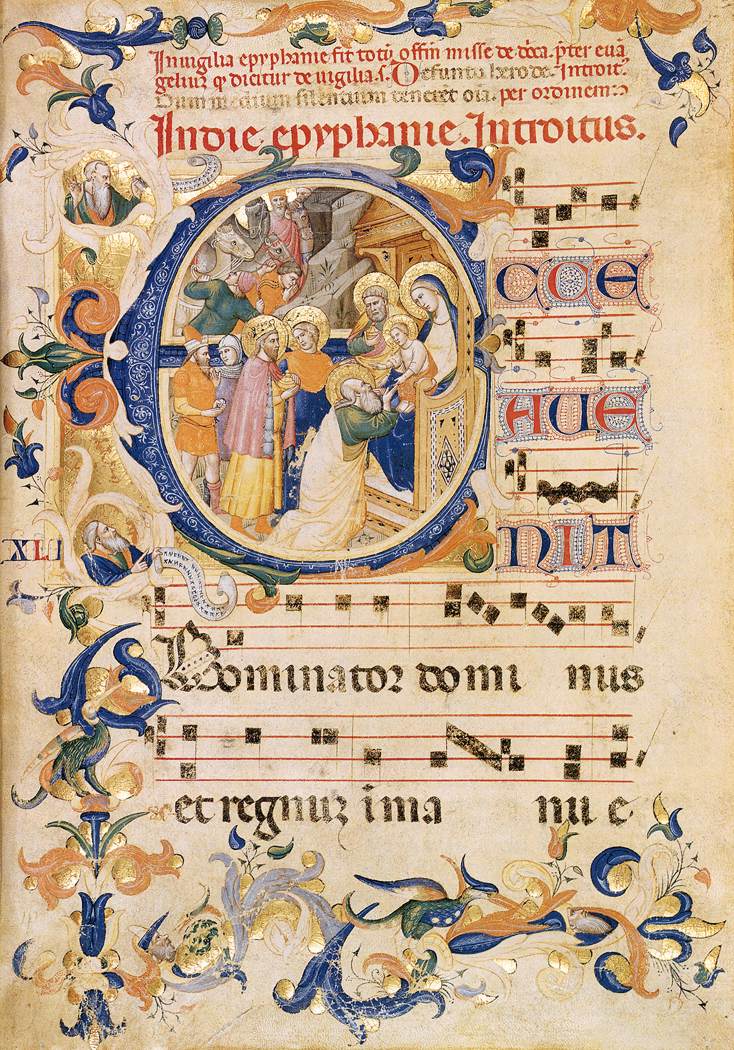 In uigilia epyphanie fit totũ offm̃ misse de dñica. pter euã
geliuz qd dicitur de uigilia. s. Defuncto herode. Introit.
Dum medium silencium teneret oĩa. per ordinem:
In die epyphanie. Introitus.
CCE
AVE
NIT
XLI
Dominator domi nus
et regnuz ima nu e